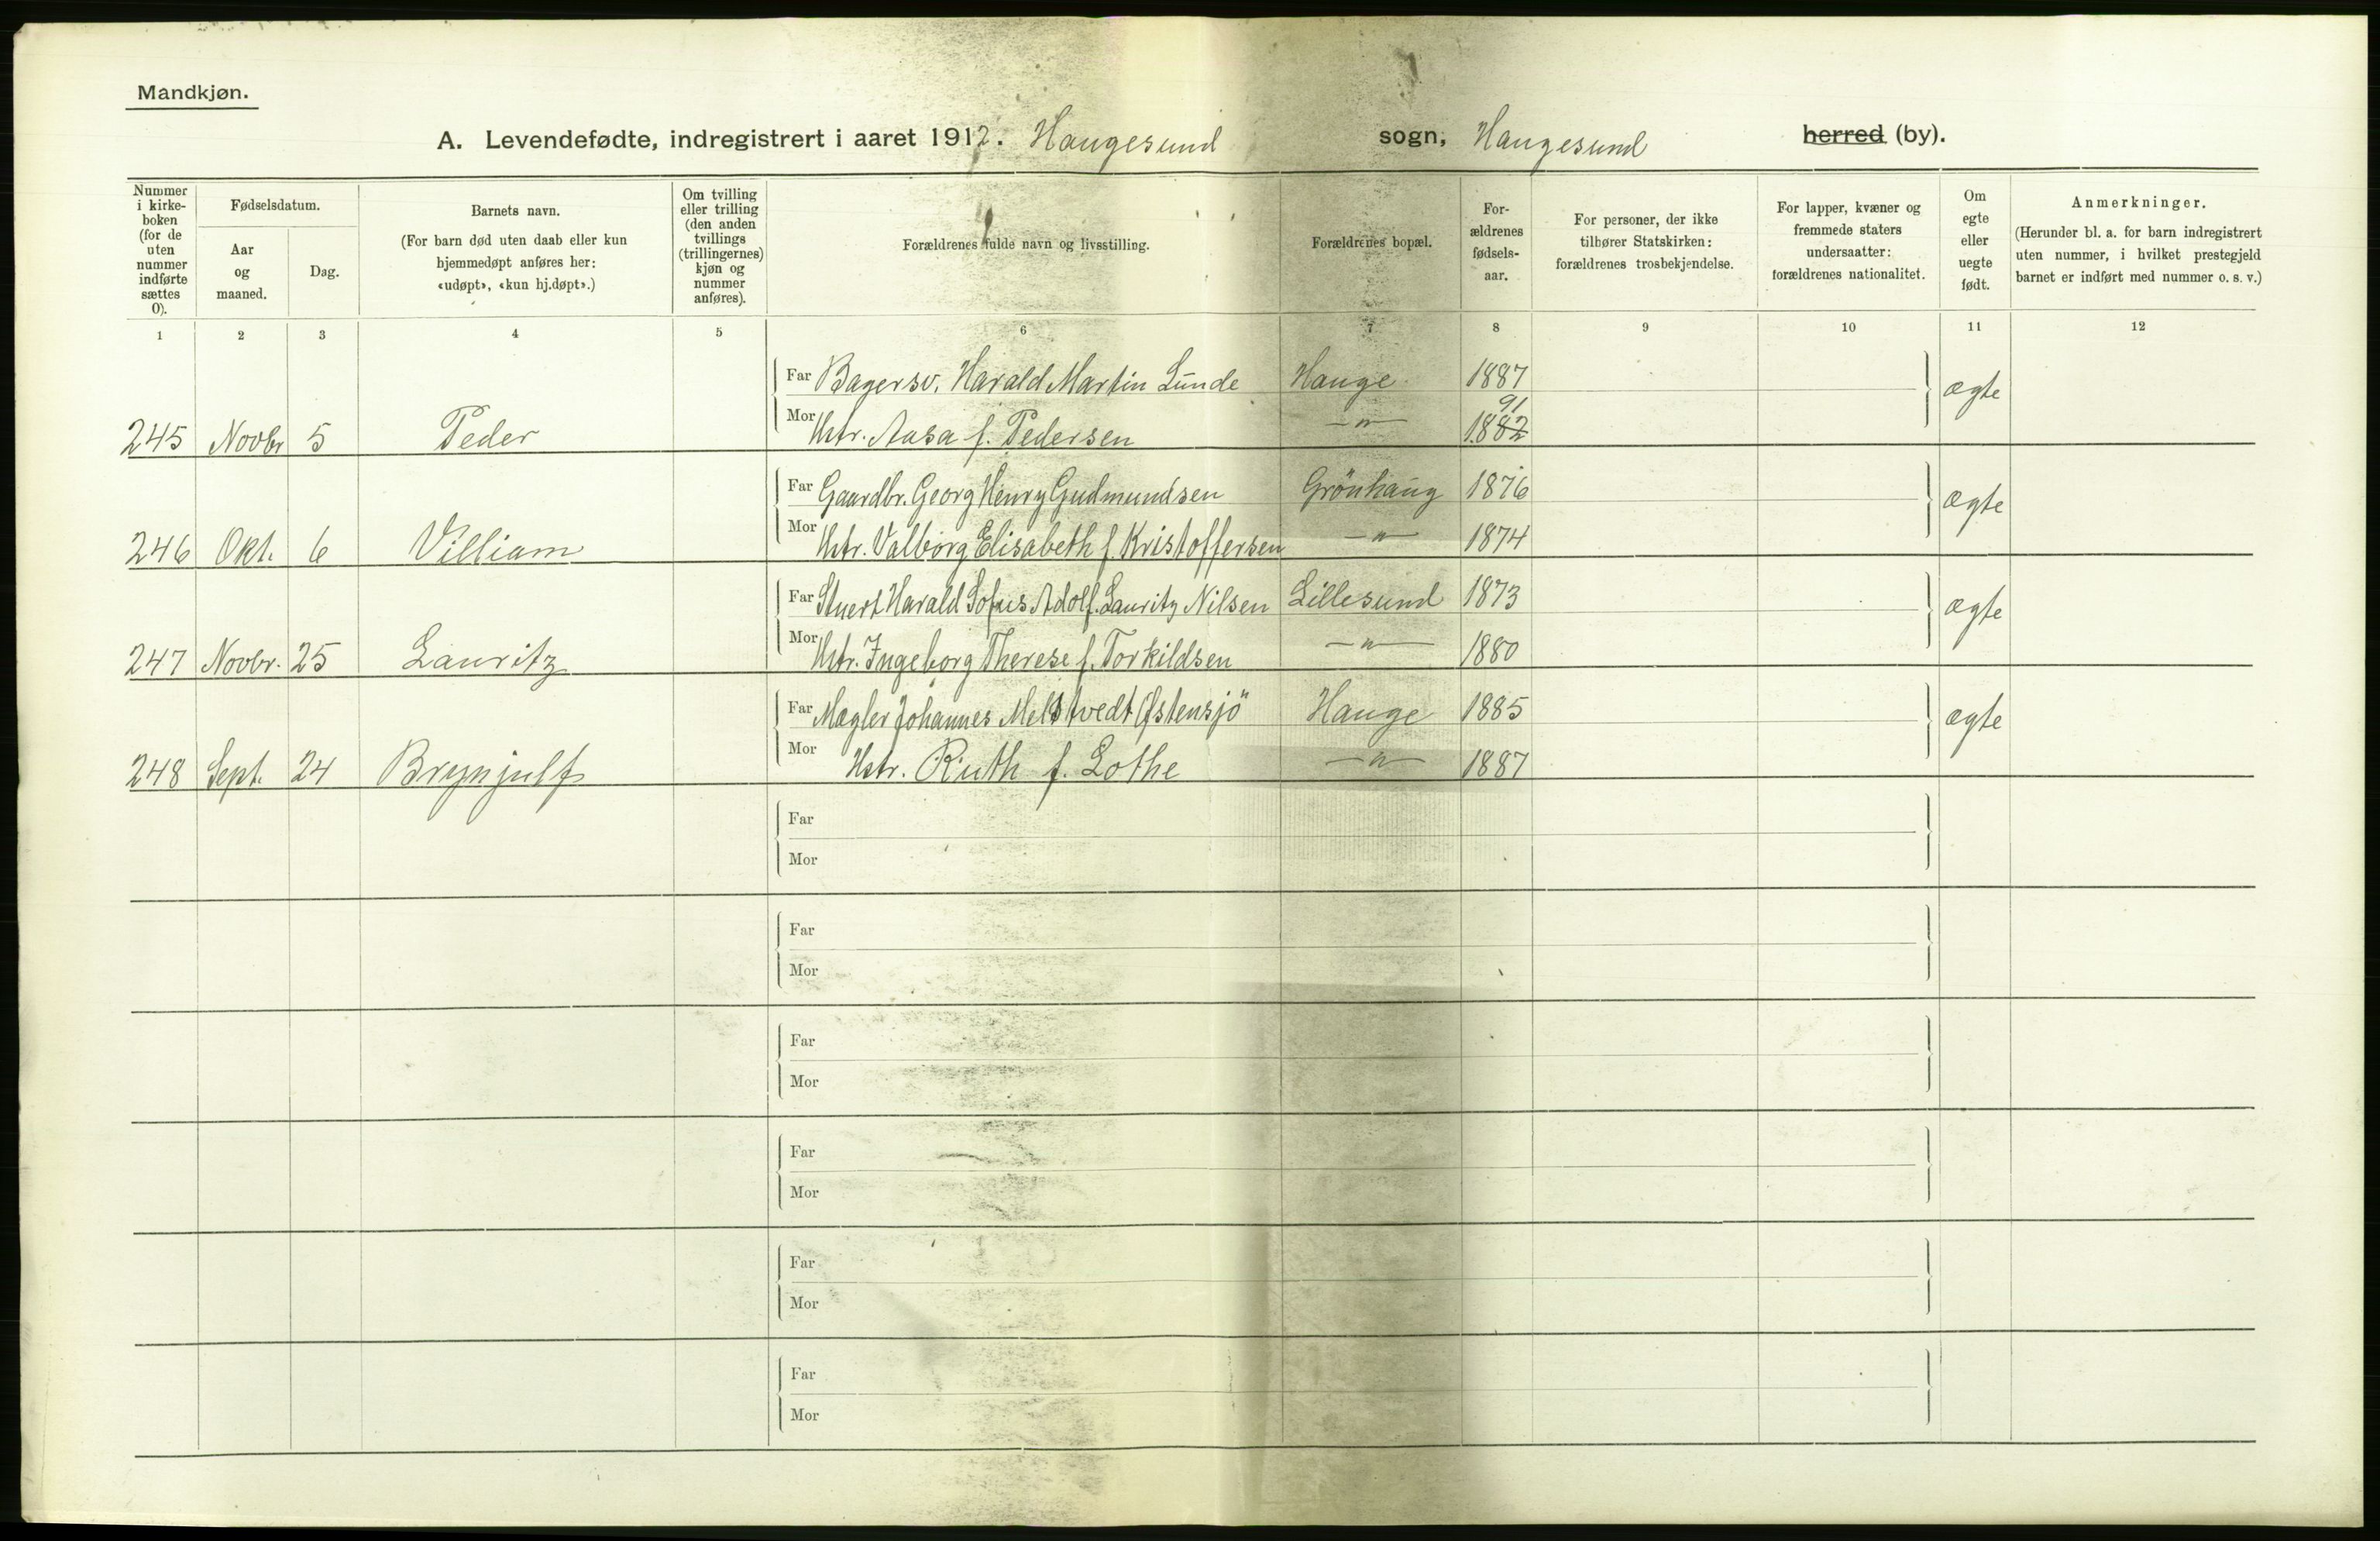 Mandkjøn.
A. Levendefødte, indregistrert i aaret 1912. Haugesund sogn, Haugesund herred (by).
Nummer i kirke-boken (for de uten nummer indførte sættes 0).
Fødselsdatum.
Aar og maaned.
Dag.
Barnets navn.
(For barn død uten daab eller kun hjemmedøpt anføres her: «udøpt», «kun hj.døpt».)
Om tvilling eller trilling (den anden tvillings (trillingernes) kjøn og nummer anføres).
Forældrenes fulde navn og livsstilling.
Forældrenes bopæl.
For-ældrenes fødsels-aar.
For personer, der ikke tilhører Statskirken: forældrenes trosbekjendelse.
For lapper, kvæner og fremmede staters undersaatter: forældrenes nationalitet.
Om egte eller uegte født.
Anmerkninger.
(Herunder bl. a. for barn indregistrert uten nummer, i hvilket prestegjeld barnet er indført med nummer o. s. v.)
1 2 3 4 5 6 7 8 9 10 11 12
Far Bagersv. Harald Martin Lunde Hauge 1887 ægte
245 Novbr 5 Peder Mor Hstr. Aasa f. Pedersen -"- 1882 91
Far Gaardbr. Georg Henry Gudmundsen Grönhaug 1876 ægte
246 Okt. 6 Villiam Mor Hstr. Valborg Elisabeth f. Kristoffersen -"- 1874
Far Stuert Harald Sofus Adolf Lauritz Nilsen Lillesund 1873 ægte
247 Novbr. 25 Lauritz Mor Hstr. Ingeborg Therese f. Torkildsen -"- 1880
Far Mægler Johannes Østensjö Hauge 1885 ægte
248 Sept. 24 Brynjulf Mor Hstr. Ruth f. Lothe -"- 1887
Far
Mor
Far
Mor
Far
Mor
Far
Mor
Far
Mor
Far
Mor